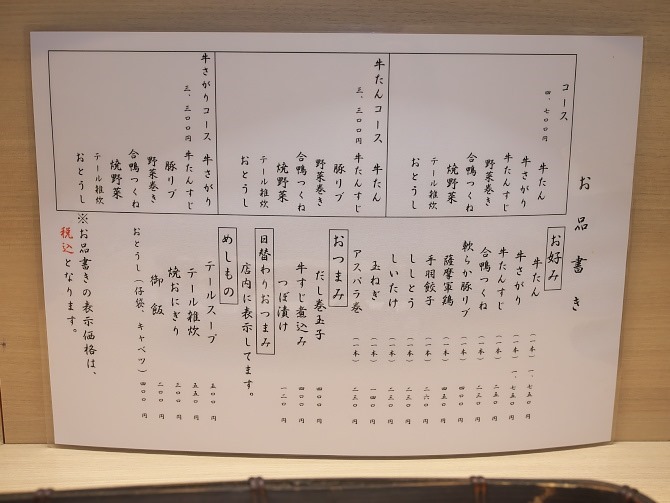 お品書き
コース
四、七〇〇円
牛たん
牛さがり
牛たんすじ
野菜巻き
合鴨つくね
豚リブ
焼野菜
テール雑炊
おとうし
牛たんコース
三、三〇〇円
牛たん
牛たんすじ
豚リブ
野菜巻き
合鴨つくね
焼野菜
テール雑炊
おとうし
牛さがりコース
三、三〇〇円
牛さがり
牛たんすじ
豚リブ
野菜巻き
合鴨つくね
焼野菜
テール雑炊
おとうし
お好み
牛たん（一本）一、七五〇円
牛さがり（一本）一、七五〇円
牛たんすじ（一本）二五〇円
合鴨つくね（一本）二三〇円
軟らか豚リブ 四〇〇円
薩摩軍鶏 四五〇円
手羽餃子 二六〇円
ししとう 二三〇円
しいたけ 二三〇円
玉ねぎ（一本）一四〇円
アスパラ巻（一本）二三〇円
おつまみ
だし巻玉子 四〇〇円
牛すじ煮込み 四〇〇円
つぼ漬け 一二〇円
日替わりおつまみ
店内に表示してます。
めしもの
テールスープ 五〇〇円
テール雑炊 五五〇円
焼おにぎり 二〇〇円
御飯 二〇〇円
おとうし（仔袋、キャベツ）四〇〇円
※お品書きの表示価格は、
税込となります。